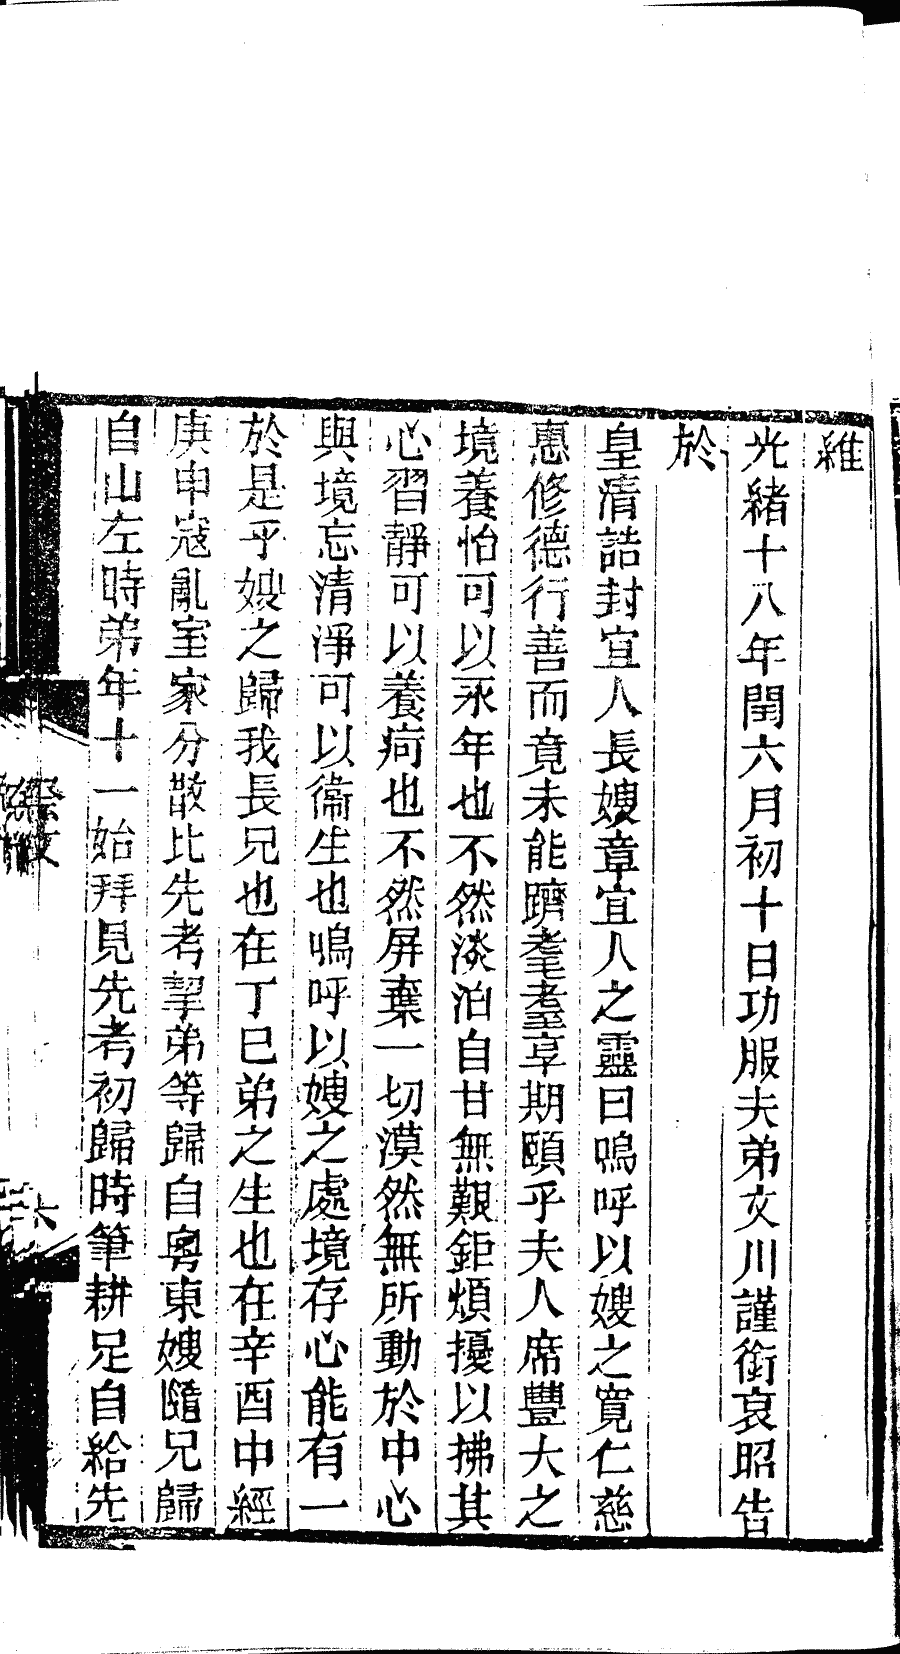 維
光緒十八年閏六月初十日功服夫弟文川謹銜哀昭告
於
皇清誥封宜人長嫂章宜人之靈曰嗚呼以嫂之寬仁慈
惠修德行善而竟未能躋耄耋享期頤乎夫人席豐大之
境養怡可以永年也不然淡泊自甘無艱鉅煩擾以拂其
心習靜可以養疴也不然屏棄一切漠然無所動於中心
與境忘清淨可以衞生也嗚呼以嫂之處境存心能有一
於是乎嫂之歸我長兄也在丁巳弟之生也在辛酉中經
庚申寇亂室家分散比先考挈弟等歸自粵東嫂隨兄歸
自山左時弟年十一始拜見先考初歸時筆耕足自給先
祭文